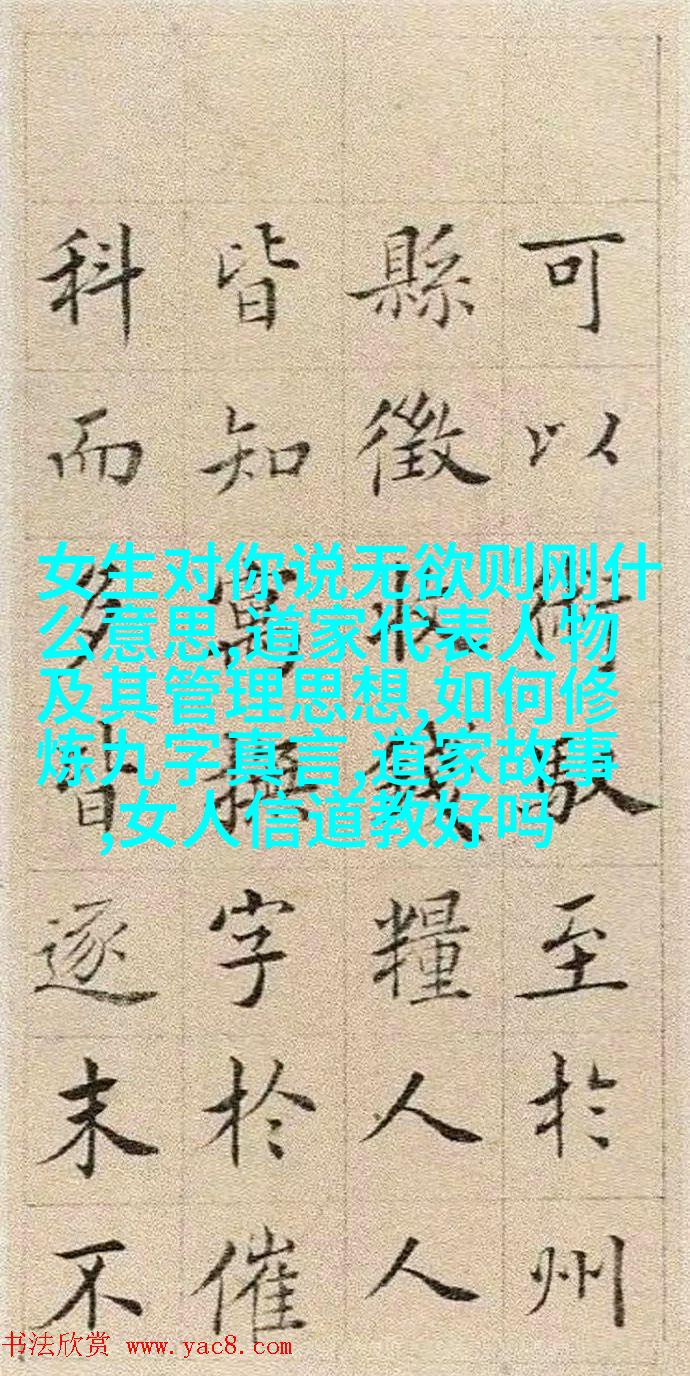 可以至於州
縣徵收錢糧人人
皆知寓撫字於催
科而多皆逐末不
女生对你说无欲则刚什
么意思,道家代表人物
及其管理思想,如何修
炼九字真言,道家故事
,女人信道教好吗
书法欣赏 www.yac8.com